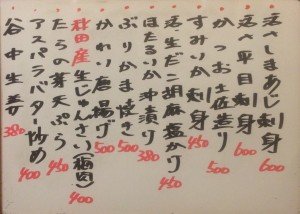 活〆しまあじ刺身 600
活〆平目刺身 600
かつお土佐造り 500
すみいか刺身 450
活生だこ胡麻塩かけ 450
ほたるいか沖漬り 380
ぶりかま焼き 500
かわり唐揚げ 500
秋田産生じゅんさい(梅肉) 400
たらの芽天ぷら 450
アスパラバター炒め 400
谷中生姜 380